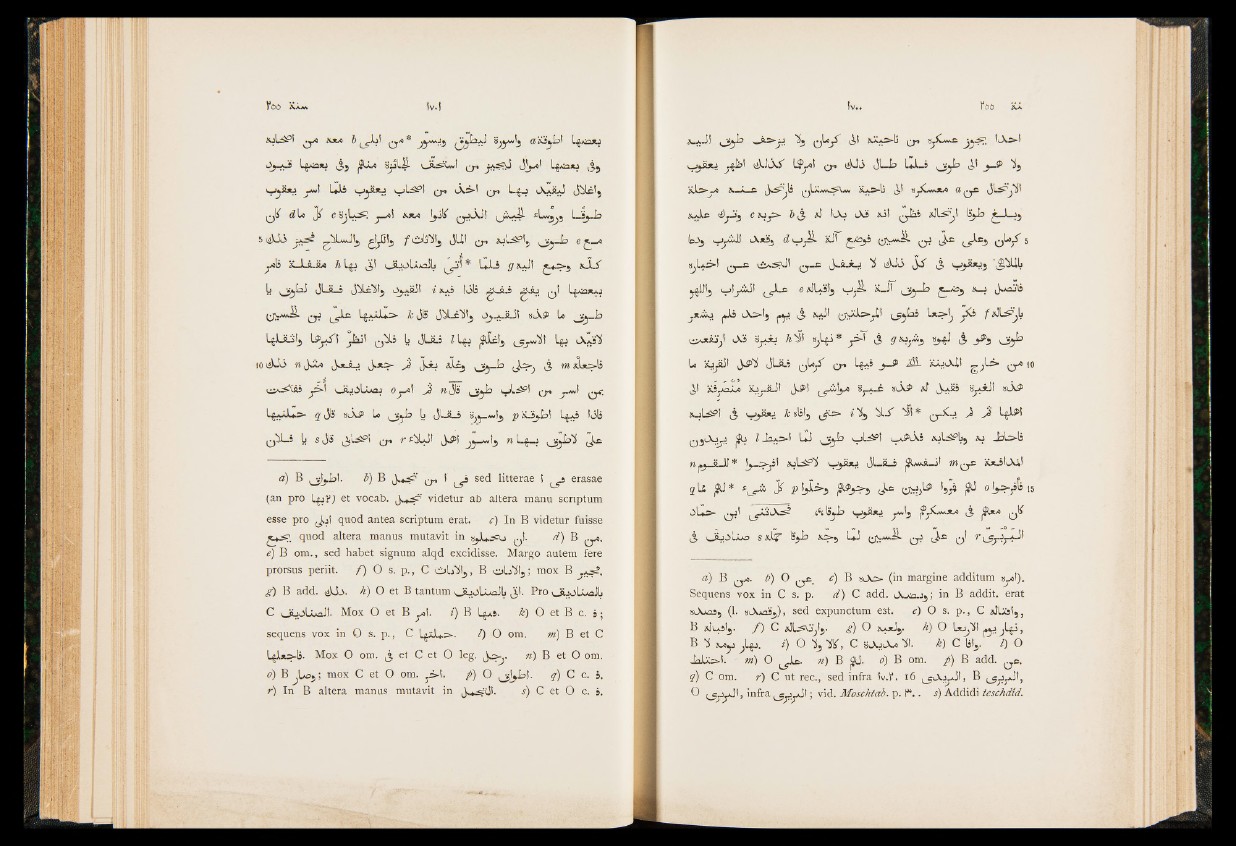 نة ٢٥٥ ١٧٠٠
احدا يجوز عسكره من ناحيته الى كرمان ولا يزحف طوق اليه
ولا هو الى طوق فلما طال ذلك من امرهما كذلك اظهر يعقوب
الارتحال عن a معسكره الى ناحية سجستان فارتحل عنه مرحلة
وبلغ طوقا ارتحاله فظن انه قد بدا له فى b حربه c وترك عليه
كرمان وعلى على بن الحسين فوضع آلة الحرب d وقعد للشرب ودعا 5
بالملاهى ويعقوب فى كل ذلك لا يغفل عن البحث عن اخباره
فاتصل به وضع طوق آلة الحرب واقباله e على الشراب واللهو
بارتحاله f فكر راجعا فطوى المرحلتين اليه فى يوم واحد فلم يشعر
طوق وهو فى لهوه وشربه g فى آخر *نهاره الا h بغبرة قد ارتفعت
من خارج المدينة الله هو فيها من كرمان فقال لاهل القرية ما 10
هذه الغبرة فقيل له هذه غبرة مواشى اهل القرية منصرفة الى
اهلها ثم لم يكن *الا كلا ولا i حتى وافاه k يعقوب فى اصحابه
فاحاط به وباصحابه فذهب اصحاب طوق لما احيط l بهم يريدون
المدافعة عن m انفسهم فقال يعقوب لاصحابه افرجوا *للقوم n
فافرجوا o لهم فمروا هاربين على وجوههم وخلوا p كل شىء *لهم مما q 15
كان معهم فى معسكرهم واسر يعقوب طوقا، فحدثنى ابن حماد
البربرى r ان على بن الحسين لما وجه طوقا حمله s صناديق فى
a) B من. b) O عن. c) B حده (in margine additum امره).
Sequens vox in C s. p. d) C add. وقصد; in B addit. erat
وصده (l. وقصده), sed expunctum est. e) O s. p., C واقتاله,
B واقباله. f) C وارتحاله. g) O ولعبه. h) O نهار يوم الاربعا,
B نهار يومه لا. i) O كلا ولا, C الا مديدة. k) C وافا. l) O
احتاط. m) O على. n) B لهم. o) B om. p) B add. عن.
q) C om. r) C ut rec., sed infra ١٧٠٢, 16 اليزيدى, B البربرى,
O البربرى, infra البريرى; vid. Moschtab. p. ٣٠. s) Addidi teschdîd.
١٧٠١ سنة ٢٥٥
بعضها اطوقة a واسورة ليطوق ويسور *من ابلى b معه من اصحابه
وفى بعضها اموال ليجيز من استحق الجائزة منهم وفى بعضها قيود
واغلال ليقيد بها من اخذ من اصحاب يعقوب فلما اسر يعقوب
طوقا ورؤساء الجيش الذين كانوا معه امر بحيازة c كل ما d كان
مع e طوق واصحابه من المال والاثاث f والكراع والسلاح فحيز ذلك 5
كله وجمع اليه g فلما *أتى بالصناديق اتى بها h مقفلة فامر
ببعضها ان يفتح ففتح فاذا فيه i القيود والاغلال فقال لطوق يا
طوق ما هذه القيود والاغلال قال k حملنيها على بن الحسين
لاقيد بها الاسرى واغلهم بها l فقال يا فلان انظر اكبرها واثقلها
فاجعله m فى رجلى طوق وغله بغل ثم جعل يفعل مثل n ذلك 10
بمن اسر من اصحاب طوق قال n ثم امر o بصناديق أخر ففتحت
فاذا فيها اطوقة p واسورة فقال يا طوق ما هذه قال q حملنيها
على لاطوق بها n واسور اهل البلاء r من اصحابى قال s يا فلان
a) B اطواق. b) B من تحمل sed litterae erasae
(an pro بها?) et vocab. تحمل videtur ab altera manu scriptum
esse pro ابلى quod antea scriptum erat. c) In B videtur fuisse
quod altera manus mutavit in ان. d) B من.
e) B om., sed habet signum alqd excidisse. Margo autem fere
prorsus periit. f) O s. p., C والاثاث, B والاثاث; mox B
g) B add. ذلك. h) O et B tantum اتى بالصناديق. Pro بالصناديق
C الصناديق. Mox O et B امر. i) B فيها. k) O et B c. ف;
sequens vox in O s. p., C حملنيها. l) O om. m) B et C
فاجعلها. Mox O om. فى et C et O leg. رجل. n) B et O om.
o) B وصار; mox C et O om. اخر. p) O اطواق. q) C c. ف.
r) In B altera manus mutavit in s) C et O c. ف.